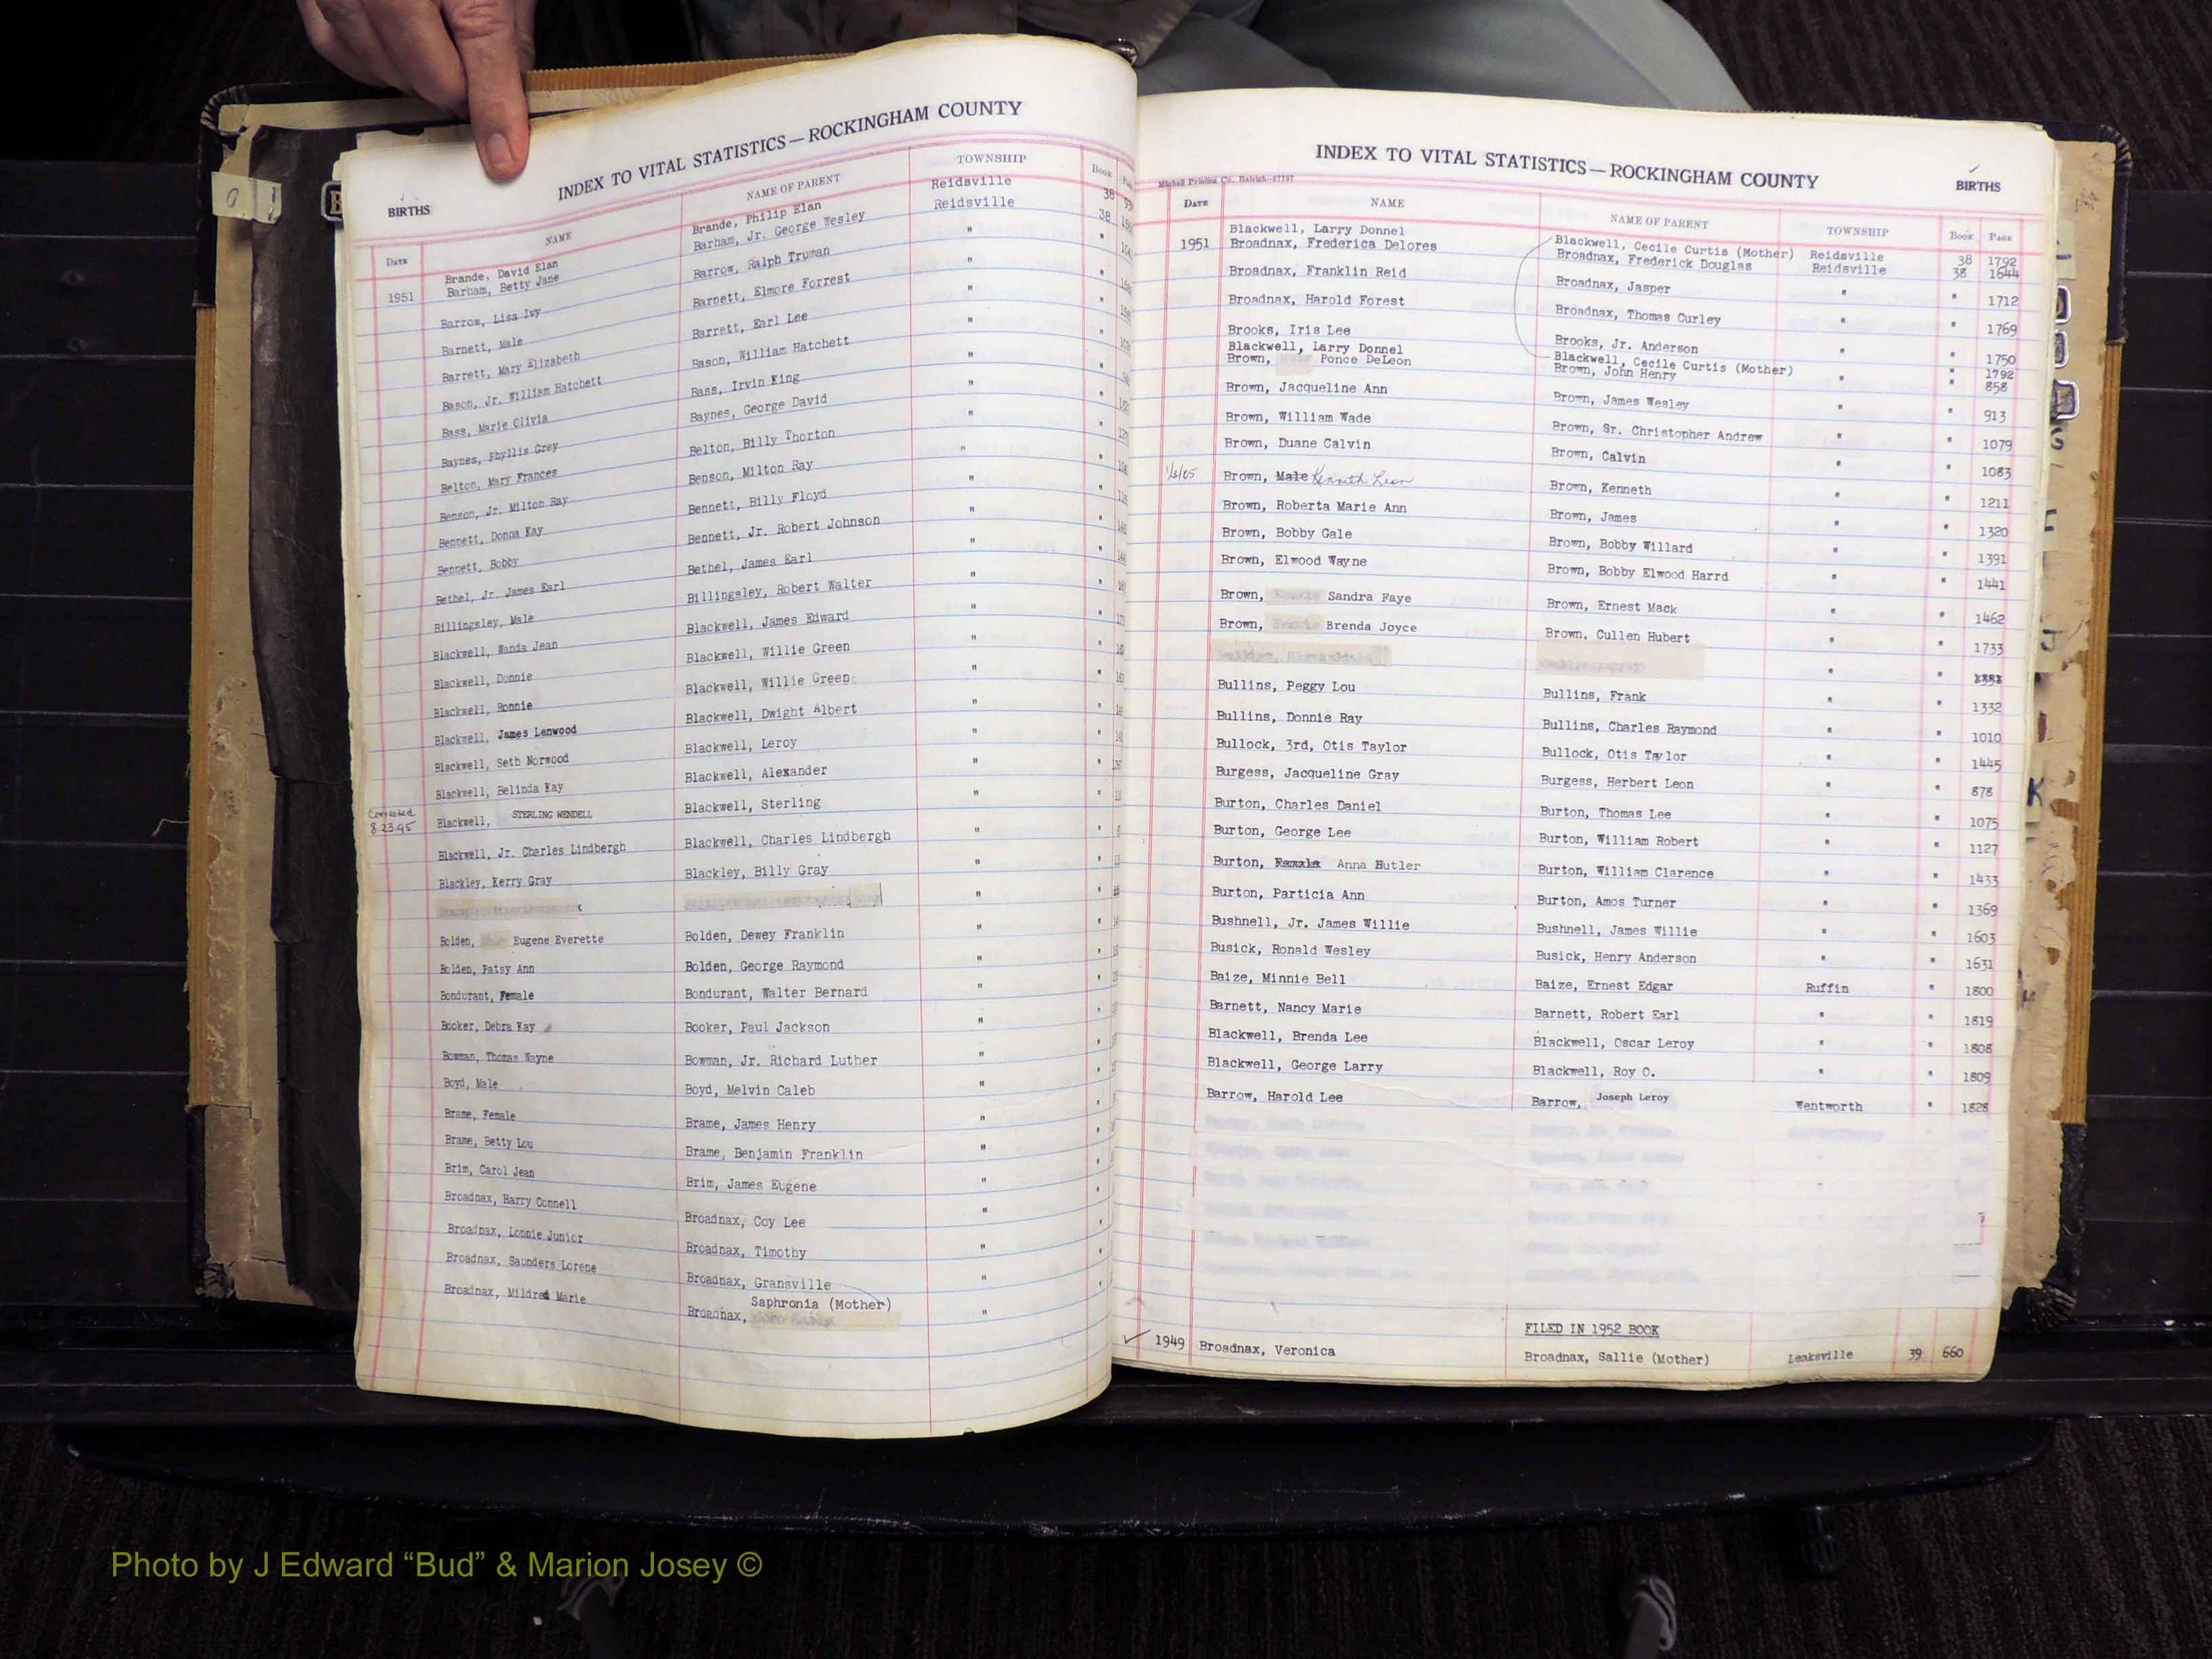 INDEX TO VITAL STATISTICS—ROCKINGHAM COUNTY
BIRTHS
DATE NAME NAME OF PARENT TOWNSHIP BOOK
Brande, David Elan Brande, Philip Elan Reidsville 38
1951 Barham, Betty Jane Barham, Jr. George Wesley Reidsville 38
Barrow, Lisa Ivy Barrow, Ralph Truman " "
Barnett, Male Barnett, Elmore Forrest " "
Barrett, Mary Elizabeth Barrett, Earl Lee " "
Bason, Jr. William Hatchett Bason, William Hatchett " "
Bass, Marie Olivia Bass, Irvin King " "
Baynes, Phyllis Grey Baynes, George David " "
Belton, Mary Frances Belton, Billy Thorton " "
Benson, Jr. Milton Ray Benson, Milton Ray " "
Bennett, Donna Kay Bennett, Billy Floyd " "
Bennett, Bobby Bennett, Jr. Robert Johnson " "
Bethel, Jr. James Earl Bethel, James Earl " "
Billingsley, Male Billingsley, Robert Walter " "
Blackwell, Wanda Jean Blackwell, James Edward " "
Blackwell, Donnie Blackwell, Willie Green " "
Blackwell, Ronnie Blackwell, Willie Green " "
Blackwell, James Lenwood Blackwell, Dwight Albert " "
Blackwell, Seth Norwood Blackwell, Leroy " "
Blackwell, Belinda Kay Blackwell, Alexander " "
Corrected 8-23-95 Blackwell, STERLING WENDELL Blackwell, Sterling " "
Blackwell, Jr. Charles Lindbergh Blackwell, Charles Lindbergh " "
Blackley, Kerry Gray Blackley, Billy Gray " "
" "
Bolden, Eugene Everette Bolden, Dewey Franklin " "
Bolden, Patsy Ann Bolden, George Raymond " "
Bondurant, Female Bondurant, Walter Bernard " "
Booker, Debra Kay Booker, Paul Jackson " "
Bowman, Thomas Wayne Bowman, Jr. Richard Luther " "
Boyd, Male Boyd, Melvin Caleb " "
Brame, Female Brame, James Henry " "
Brame, Betty Lou Brame, Benjamin Franklin " "
Brim, Carol Jean Brim, James Eugene " "
Broadnax, Harry Connell Broadnax, Coy Lee " "
Broadnax, Lonnie Junior Broadnax, Timothy " "
Broadnax, Saunders Lorene Broadnax, Gransville " "
Broadnax, Mildred Marie Broadnax, Saphronia (Mother) "
INDEX TO VITAL STATISTICS—ROCKINGHAM COUNTY
BIRTHS
Mitchell Printing Co., Raleigh
DATE NAME NAME OF PARENT TOWNSHIP BOOK PAGE
Blackwell, Larry Donnel Blackwell, Cecile Curtis (Mother) Reidsville 38 1792
1951 Broadnax, Frederica Delores Broadnax, Frederick Douglas Reidsville 38 1644
Broadnax, Franklin Reid Broadnax, Jasper " " 1712
Broadnax, Harold Forest Broadnax, Thomas Curley " " 1769
Brooks, Iris Lee Brooks, Jr. Anderson " " 1750
Blackwell, Larry Donnel Blackwell, Cecile Curtis (Mother) " 1792
Brown, Ponce DeLeon Brown, John Henry " " 858
Brown, Jacqueline Ann Brown, James Wesley " " 913
Brown, William Wade Brown, Sr. Christopher Andrew " " 1079
Brown, Duane Calvin Brown, Calvin " " 1083
1/3/05 Brown, Male Kenneth Leon Brown, Kenneth " " 1211
Brown, Roberta Marie Ann Brown, James " " 1320
Brown, Bobby Gale Brown, Bobby Willard " " 1391
Brown, Elwood Wayne Brown, Bobby Elwood Harrd " " 1441
Brown, Sandra Faye Brown, Ernest Mack " " 1462
Brown, Brenda Joyce Brown, Cullen Hubert " " 1733
" "
Bullins, Peggy Lou Bullins, Frank " " 1332
Bullins, Donnie Ray Bullins, Charles Raymond " " 1010
Bullock, 3rd, Otis Taylor Bullock, Otis Taylor " " 1445
Burgess, Jacqueline Gray Burgess, Herbert Leon " " 878
Burton, Charles Daniel Burton, Thomas Lee " " 1075
Burton, George Lee Burton, William Robert " " 1127
Burton, Female Anna Butler Burton, William Clarence " " 1433
Burton, Particia Ann Burton, Amos Turner " " 1369
Bushnell, Jr. James Willie Bushnell, James Willie " " 1603
Busick, Ronald Wesley Busick, Henry Anderson " " 1631
Baize, Minnie Bell Baize, Ernest Edgar Ruffin " 1800
Barnett, Nancy Marie Barnett, Robert Earl " " 1819
Blackwell, Brenda Lee Blackwell, Oscar Leroy " " 1808
Blackwell, George Larry Blackwell, Roy O. " " 1809
Barrow, Harold Lee Barrow, Joseph Leroy Wentworth " 1828
FILED IN 1952 BOOK
✓ 1949 Broadnax, Veronica Broadnax, Sallie (Mother) Leaksville 39 660
Photo by J Edward “Bud” & Marion Josey ©